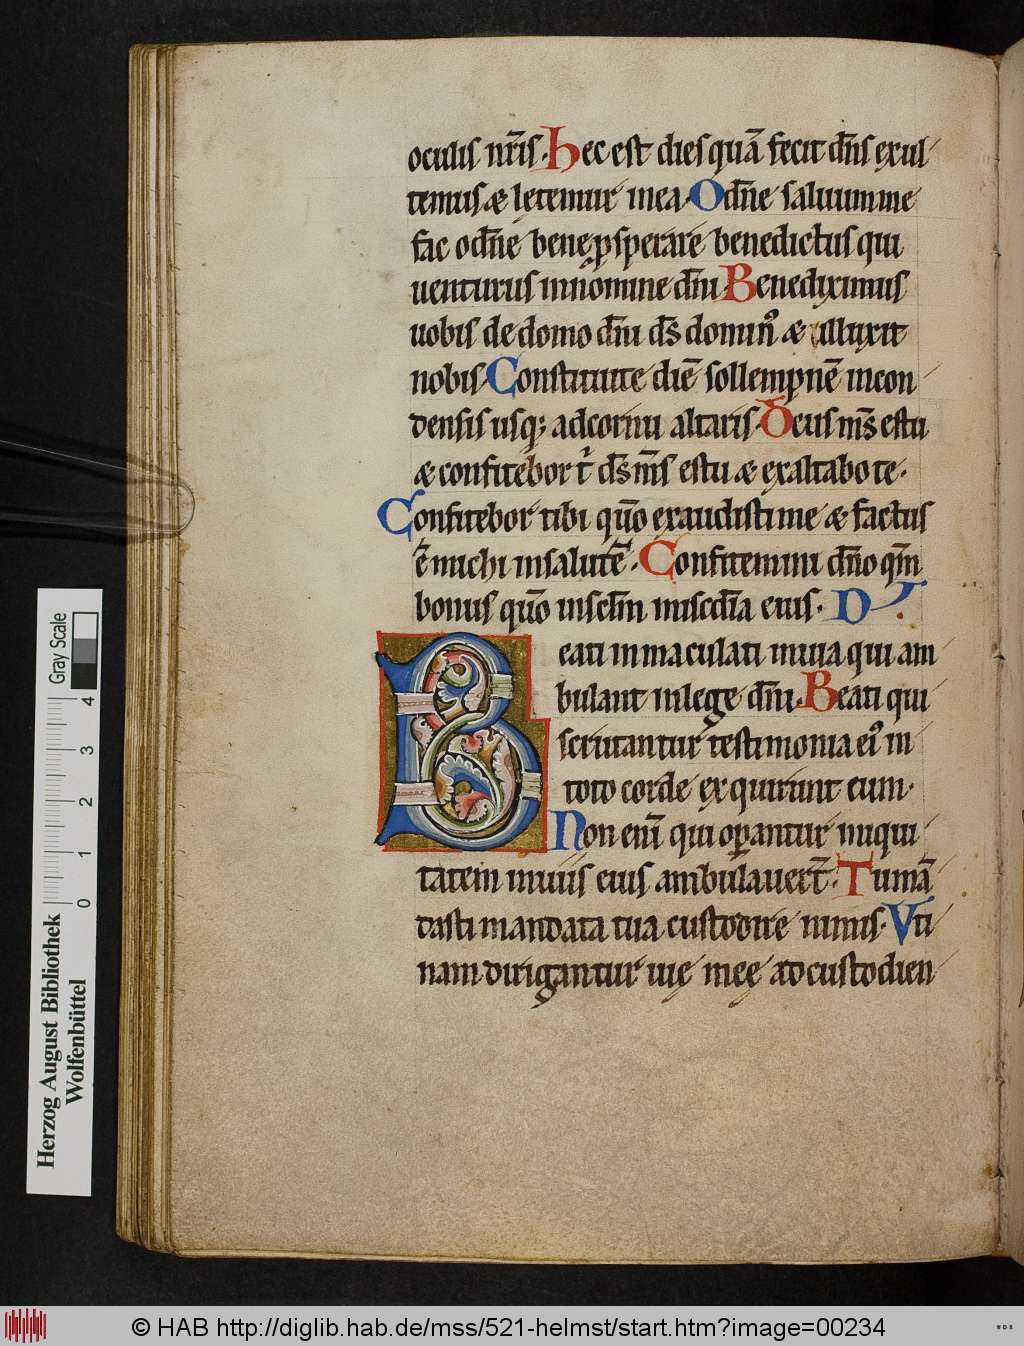 oculis nr̄is. Hec est dies quā fecit dn̄s exul
temus & lętemur in ea. O dn̄e saluum me
fac o dn̄e bene ꝓsperare benedictus qui
uenturus in nomine dn̄i. Benediximus
uobis de domo dn̄i ds̄ dominꝰ & illuxit
nobis. Constituite diē sollempnē in con
densis usq; ad cornu altaris. Deus ms̄ es tu
& confitebor t' ds̄ ms̄ es tu & exaltabo te.
Confitebor tibi qūo exaudisti me & factus
ē michi in salutē. Confitemini dn̄o qm̄
bonus qūo in sclm̄ miscd̄ia eius. D
Beati inmaculati in uia qui am
bulant in lege dn̄i. Beati qui
scrutantur testimonia eiꝰ in
toto corde exquirunt eum.
Non enī qui oꝑantur iniqui
tatem in uiis eius ambulauer̄t. Tu mā
dasti mandata tua custodire nimis. Vti
nam dirigantur uię meę ad custodien
Gray Scale
0 1 2 3 4
Herzog August Bibliothek
Wolfenbüttel
© HAB http://diglib.hab.de/mss/521-helmst/start.htm?image=00234